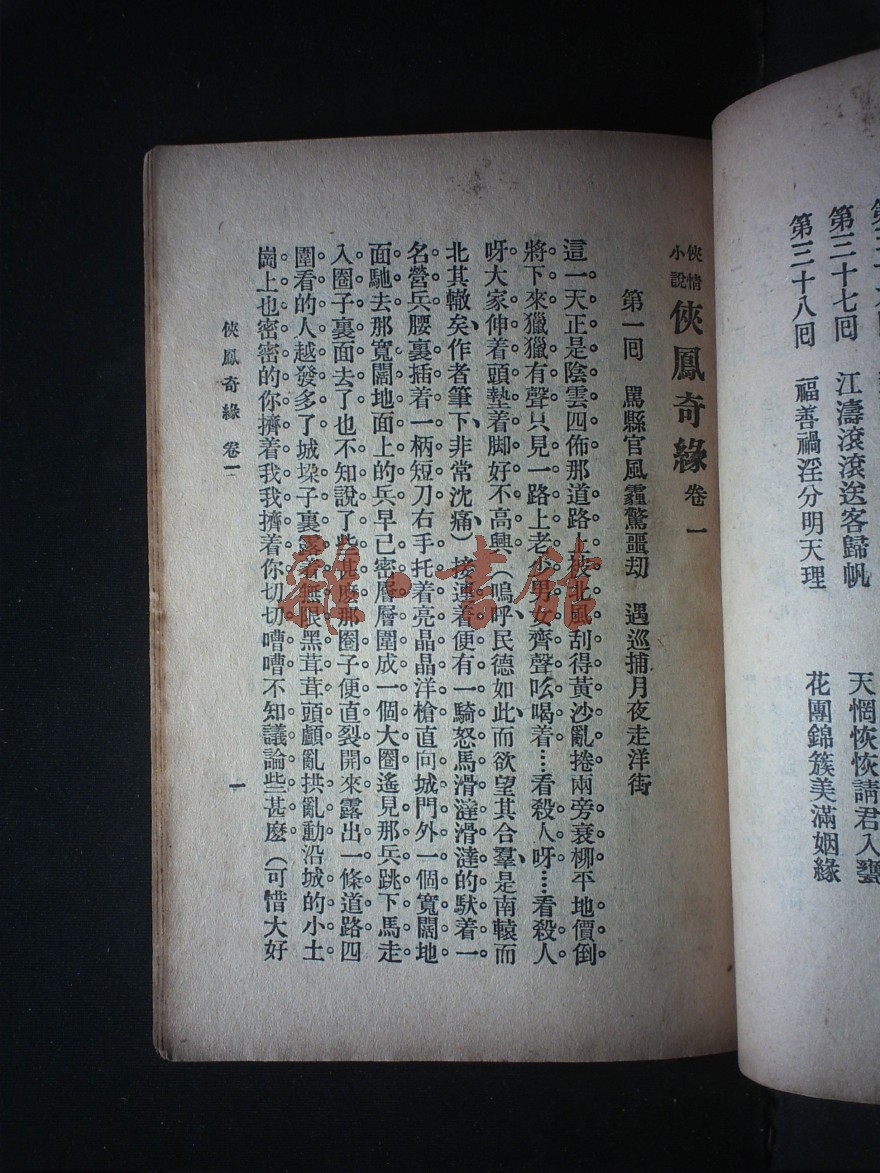 第三十七回　江濤滾滾送客歸帆
天惘恢恢請君入甕
第三十八回　福善禍淫分明天理
花團錦簇美滿姻緣
俠情小說　俠鳳奇緣　卷一
第一回　罵縣官風霾驚噩劫　遇巡捕月夜走洋街
這一天正是陰雲四佈那道路上被北風刮得黃沙亂捲兩旁衰柳平地價倒
將下來獵獵有聲只見一路上老少男女齊聲吆喝着……看殺人呀……看殺人
呀大家伸着頭墊着脚好不高興（嗚呼民德如此而欲望其合羣是南轅而
北其轍矣作者筆下非常沈痛）接連着便有一騎怒馬滑澾滑澾的馱着一
名營兵腰裏插着一柄短刀右手托着亮晶晶洋槍直向城門外一個寬闊地
面馳去那寬闊地面上的兵早已密層層圍成一個大圈遙見那兵跳下馬走
入圈子裏面去了也不知說了些甚麽那圈子便直裂開來露出一條道路四
圍看的人越發多了城垛子裏露着無限黑茸茸頭顱亂拱亂動沿城的小土
崗上也密密的你擠着我我擠着你切切嘈嘈不知議論些甚麽（可惜大好
俠鳳奇緣　卷一
一
雜·書館